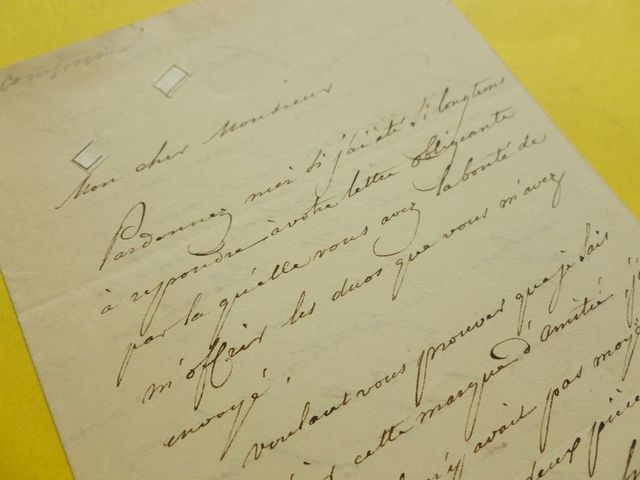 Mon cher Monsieur
Pardonnez moi si j'ai été si longtems
à repondre à votre lettre obligeante
par la qu'elle vous avez la bonté de
m'offrir les duos que vous m'avez
envoyé.
voulant vous prouver que je sais
cette marque d'amitié
avait pas
deux